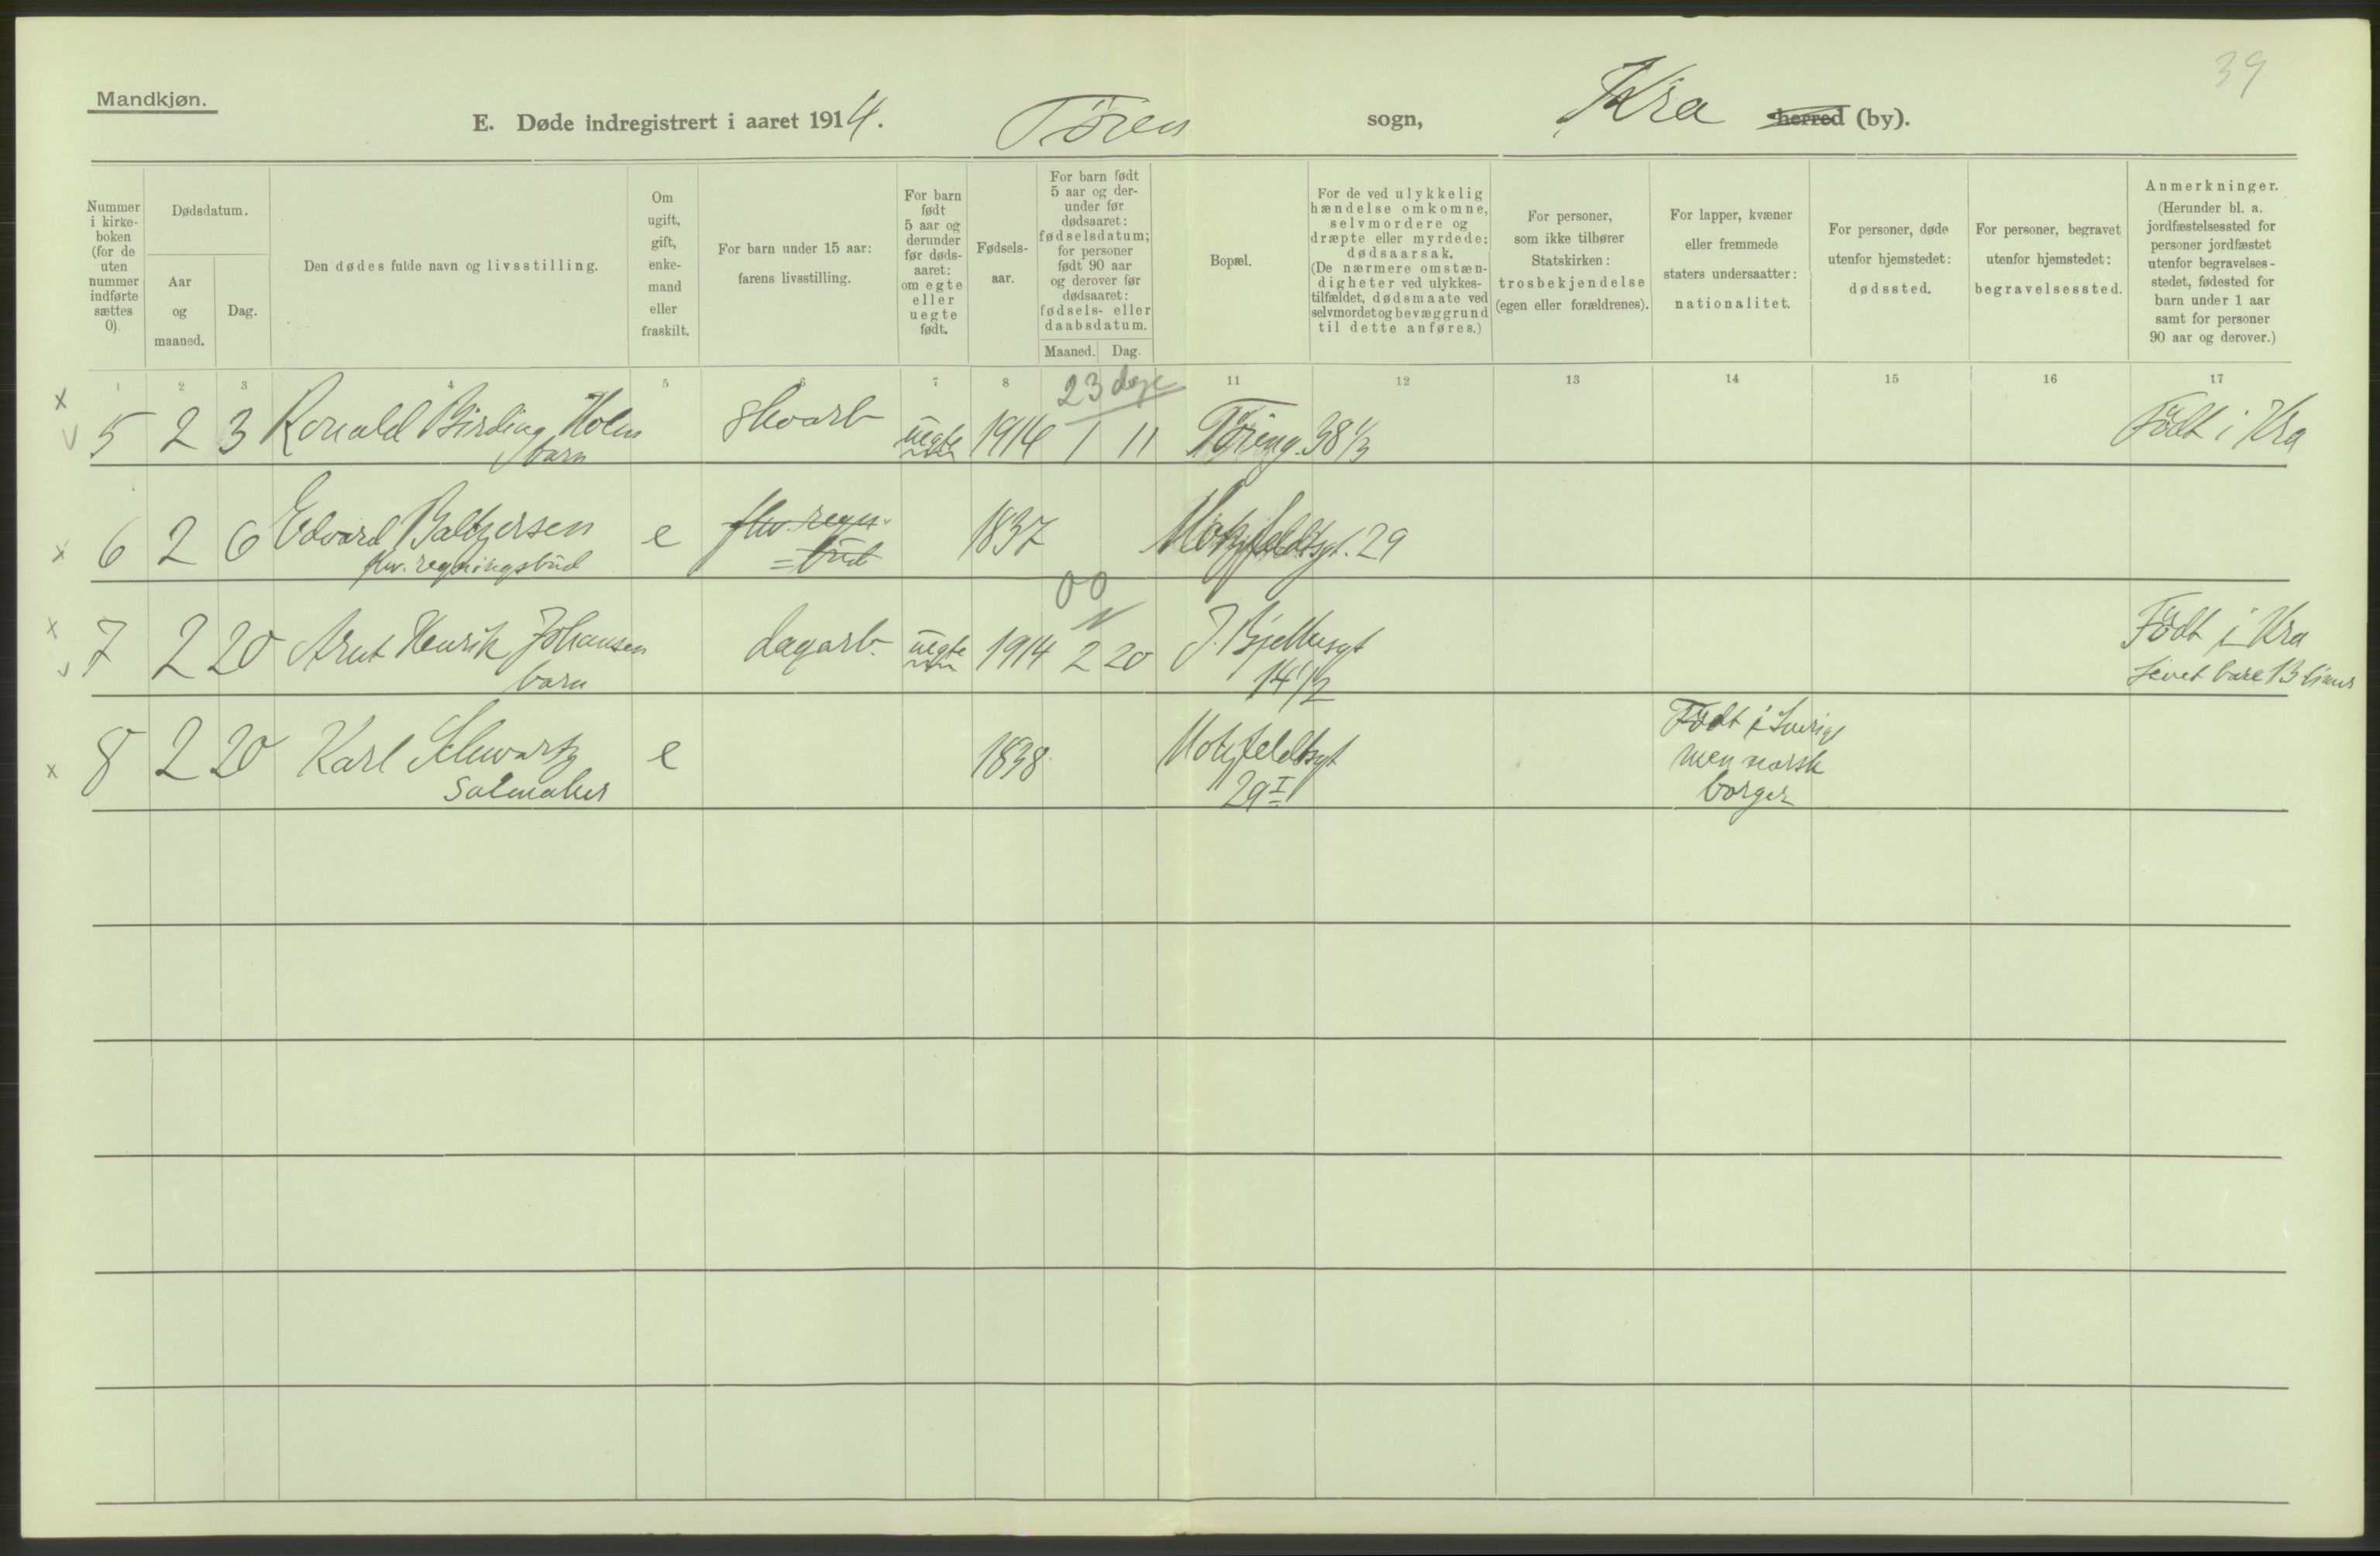 39
Mandkjøn.
E. Døde indregistrert i aaret 1914. Tøien sogn, Kra herred (by).
Nummer i kirke-boken (for de uten nummer indførte sættes 0).
Dødsdatum.
Aar og maaned.
Dag.
Den dødes fulde navn og livsstilling.
Om ugift, gift, enke-mand eller fraskilt.
For barn under 15 aar: farens livsstilling.
For barn født 5 aar og derunder før døds-aaret: om egte eller uegte født.
Fødsels-aar.
For barn født 5 aar og der-under før dødsaaret: fødselsdatum; for personer født 90 aar og derover før dødsaaret: fødsels- eller daabsdatum.
Maaned. Dag.
Bopæl.
For de ved ulykkelig hændelse omkomne, selvmordere og dræpte eller myrdede: dødsaarsak. (De nærmere omstæn-digheter ved ulykkes-tilfældet, dødsmaate ved selvmordet og bevæggrund til dette anføres.)
For personer, som ikke tilhører Statskirken: trosbekjendelse (egen eller forældrenes).
For lapper, kvæner eller fremmede staters undersaatter: nationalitet.
For personer, døde utenfor hjemstedet: dødssted.
For personer, begravet utenfor hjemstedet: begravelsessted.
Anmerkninger. (Herunder bl. a. jordfæstelsessted for personer jordfæstet utenfor begravelses-stedet, fødested for barn under 1 aar samt for personer 90 aar og derover.)
1 2 3 4 5 6 7 8 11 12 13 14 15 16 17
23 dage
5 2 3 Ronald Birding Holm skoarb uegte 1914 1 11 Tøieng. 38 1/3 Født i Kra
barn
6 2 6 Edvard Baltzersen e fhv. regn. 1837 Motzfeldtsgt. 29
fhv. regningsbud = bud
00
7 2 20 Arnt Henrik Johansen dagarb. uegte 1914 2 20 J. Bjelkesgt Født i Kra
barn 14 1/2 Levet bare 13 timer
8 2 20 Karl Schwartz e 1838 Motzfeldtsgt Født i Sverige
Salmaker 29 I men norsk
borger